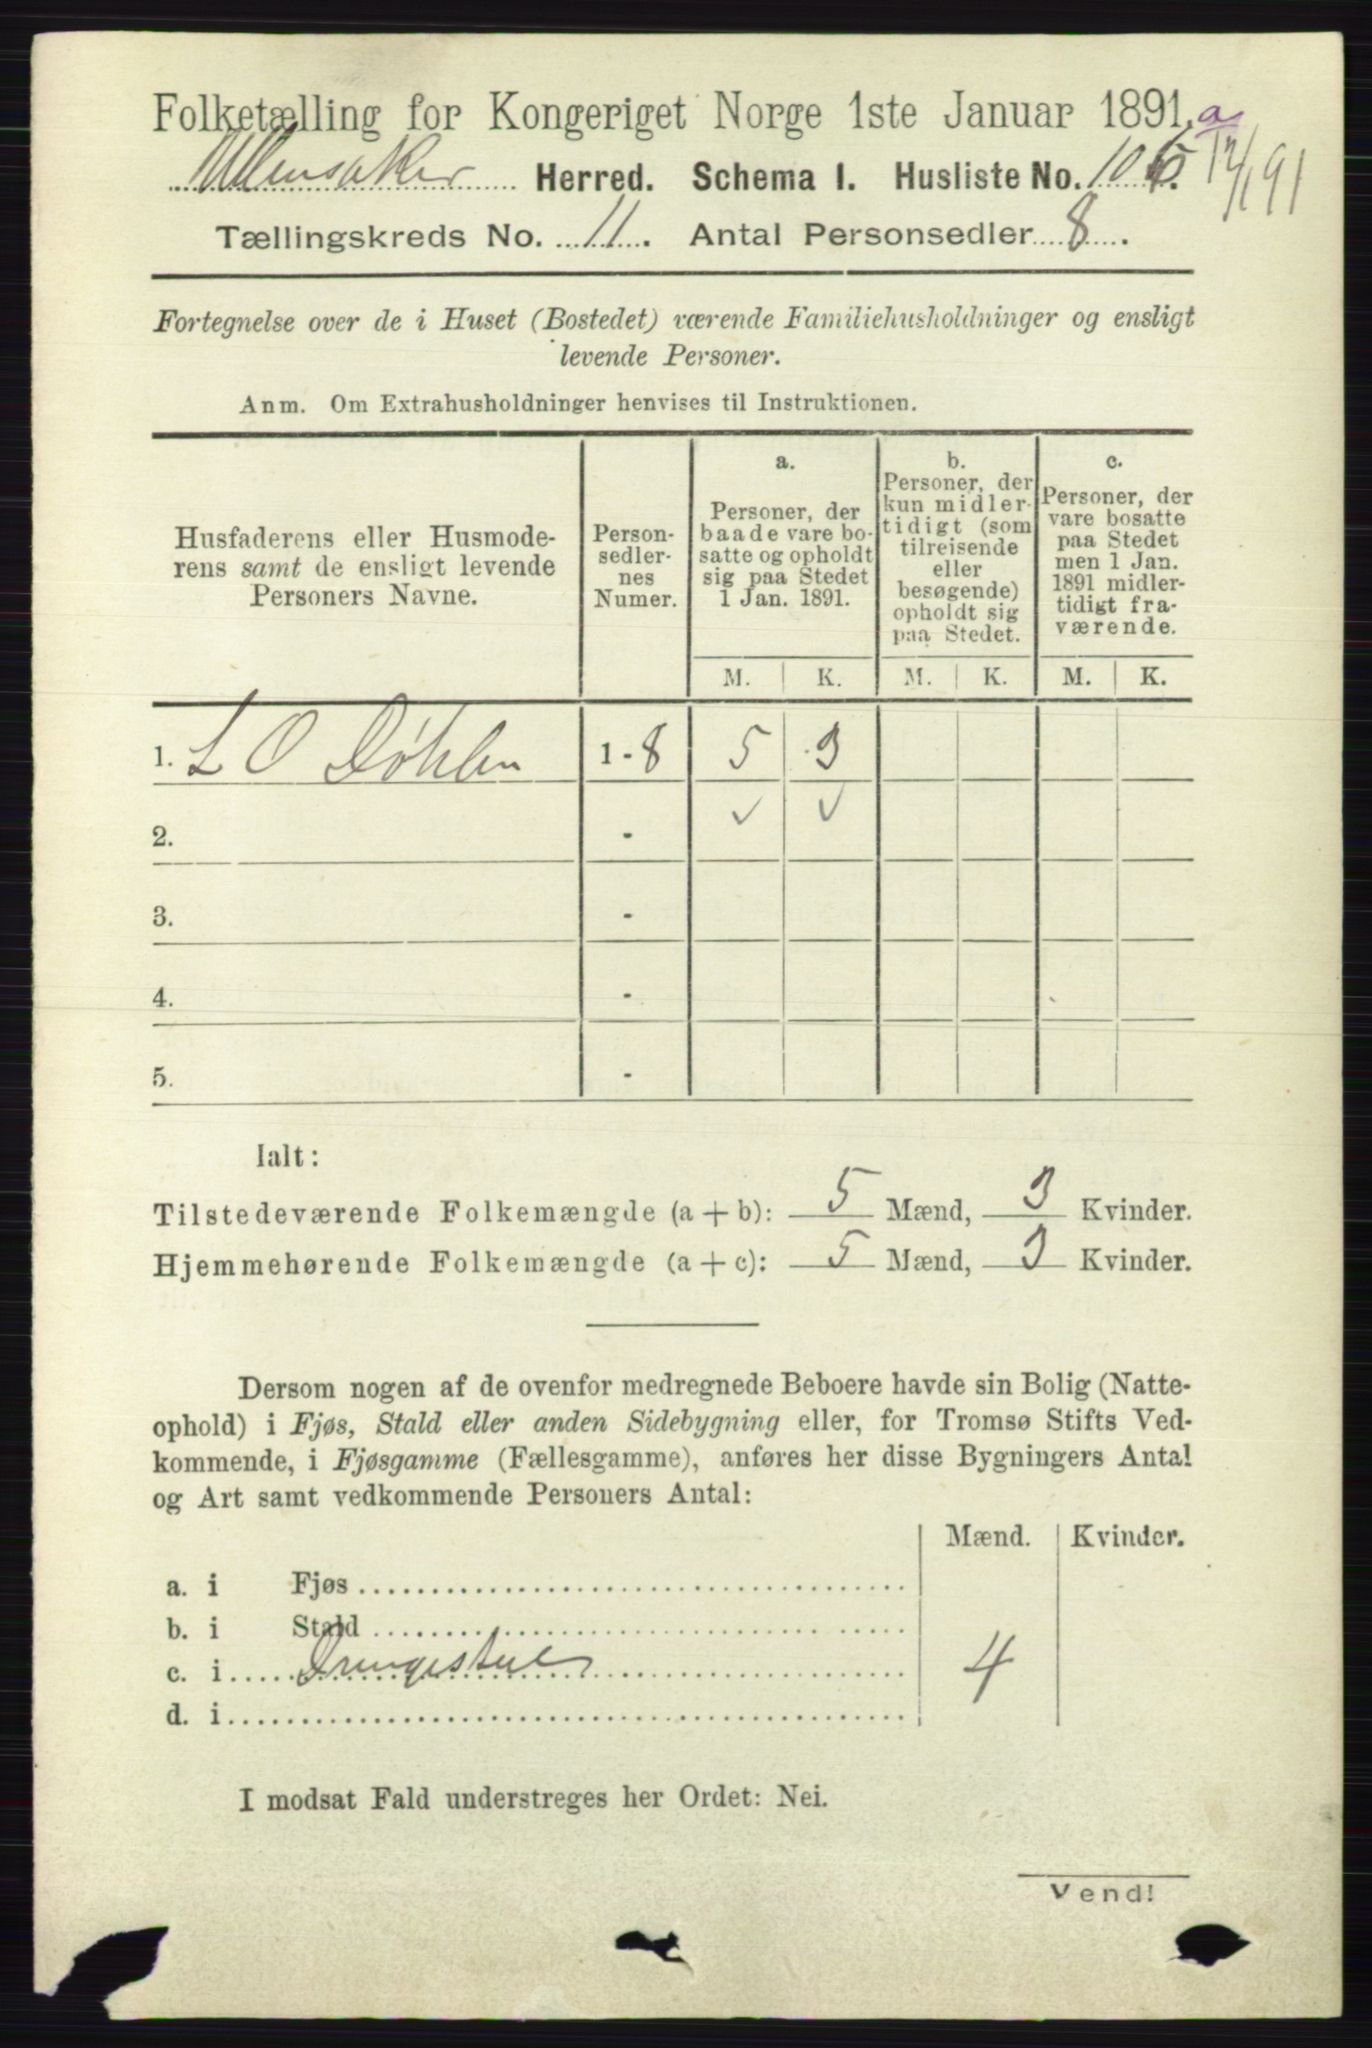 Folketælling for Kongeriget Norge 1ste Januar 1891.
a
Ullensaker Herred. Schema I. Husliste No. 106. 12/1 91
Tællingskreds No. 11. Antal Personsedler 8.
Fortegnelse over de i Huset (Bostedet) værende Familiehusholdninger og ensligt
levende Personer.
Anm. Om Extrahusholdninger henvises til Instruktionen.
Husfaderens eller Husmode-
rens samt de ensligt levende
Personers Navne.
Person-
sedler-
nes
Numer.
a.
Personer, der
baade vare bo-
satte og opholdt
sig paa Stedet
1 Jan. 1891.
b.
Personer, der
kun midler-
tidigt (som
tilreisende
eller
besøgende)
opholdt sig
paa Stedet.
c.
Personer, der
vare bosatte
paa Stedet
men 1 Jan.
1891 midler-
tidigt fra-
værende.
M. K. M. K. M. K.
1. L O Døhlen 1 - 8 5 3
2. - ✓ ✓
3. -
4. -
5. -
Ialt:
Tilstedeværende Folkemængde (a + b): 5 Mænd, 3 Kvinder.
Hjemmehørende Folkemængde (a + c): 5 Mænd, 3 Kvinder.
Dersom nogen af de ovenfor medregnede Beboere havde sin Bolig (Natte-
ophold) i Fjøs, Stald eller anden Sidebygning eller, for Tromsø Stifts Ved-
kommende, i Fjøsgamme (Fællesgamme), anføres her disse Bygningers Antal
og Art samt vedkommende Personers Antal:
Mænd. Kvinder.
a. i Fjøs
b. i Stald
c. i Drengestue 4
d. i
I modsat Fald understreges her Ordet: Nei.
Vend!